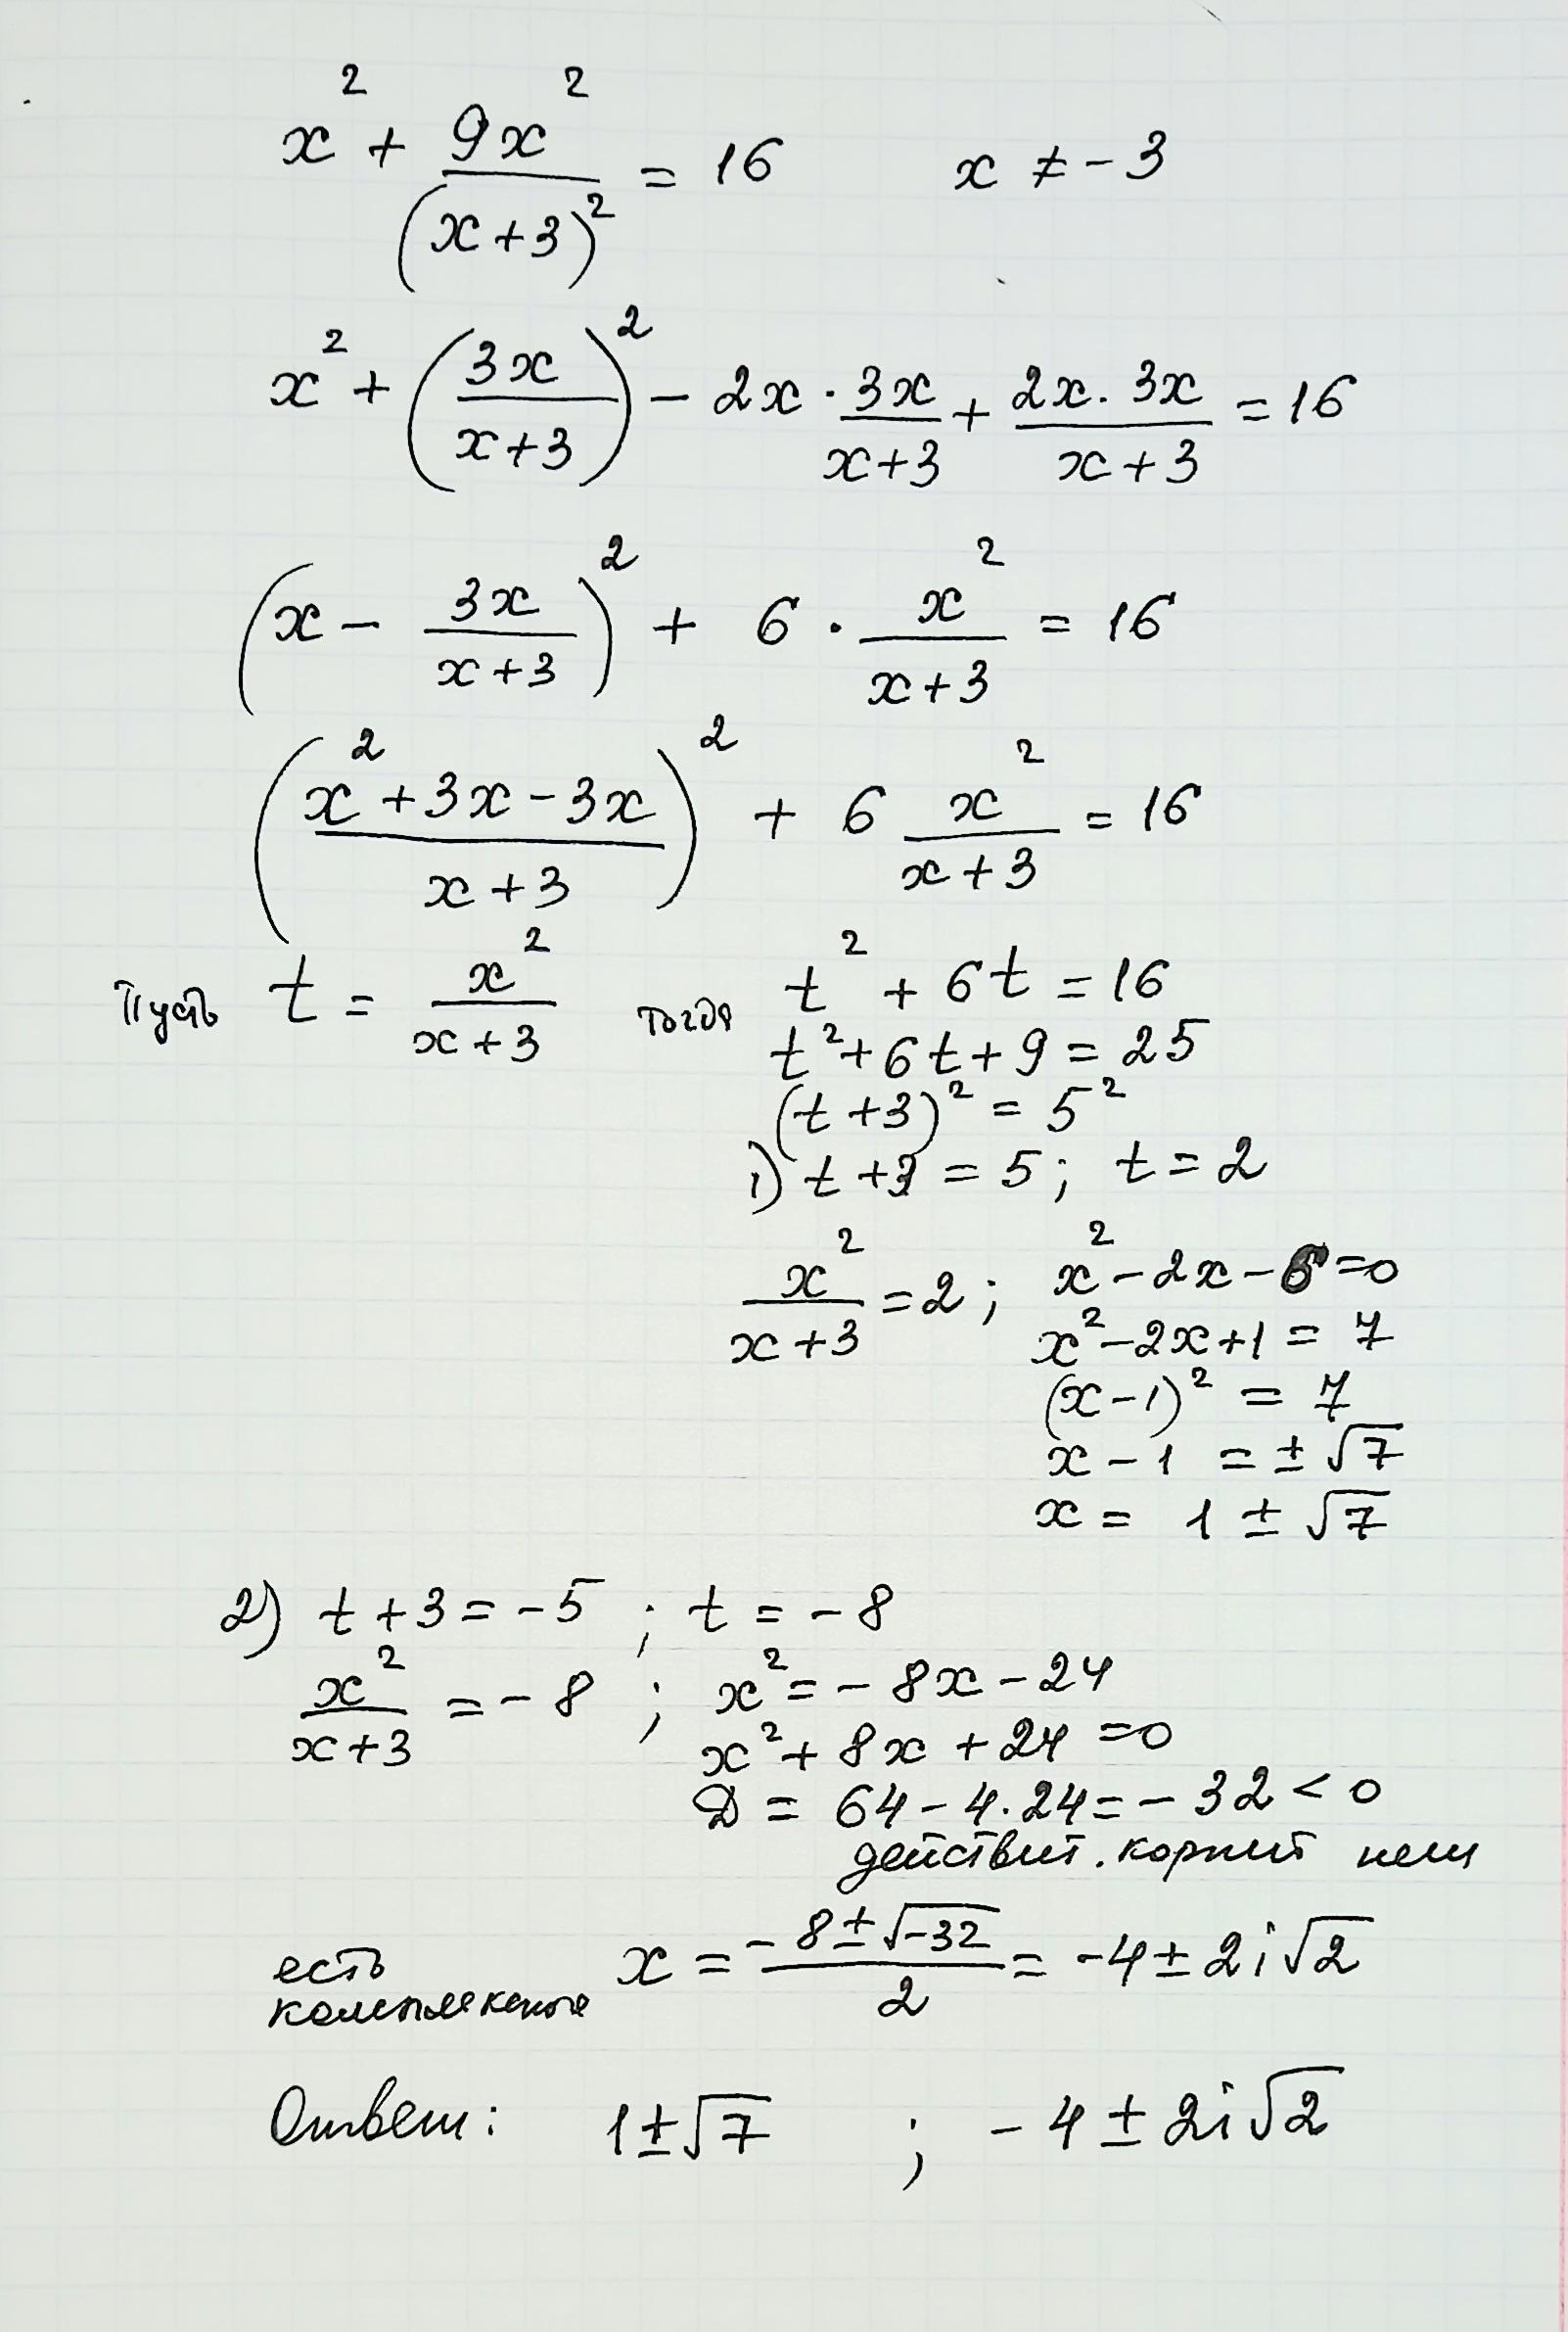 x² + 9x²/(x+3)² = 16    x ≠ -3
x² + (3x/(x+3))² - 2x · 3x/(x+3) + 2x · 3x/(x+3) = 16
(x - 3x/(x+3))² + 6 · x²/(x+3) = 16
((x² + 3x - 3x)/(x+3))² + 6 x²/(x+3) = 16
Пусть t = x²/(x+3) тогда t² + 6t = 16
t² + 6t + 9 = 25
(t + 3)² = 5²
1) t + 3 = 5; t = 2
x²/(x+3) = 2; x² - 2x - 6 = 0
x² - 2x + 1 = 7
(x - 1)² = 7
x - 1 = ± √7
x = 1 ± √7
2) t + 3 = -5; t = -8
x²/(x+3) = -8; x² = -8x - 24
x² + 8x + 24 = 0
D = 64 - 4·24 = -32 < 0
действит. корней нет
есть комплексные x = (-8 ± √-32)/2 = -4 ± 2i√2
Ответ: 1 ± √7 ; -4 ± 2i√2